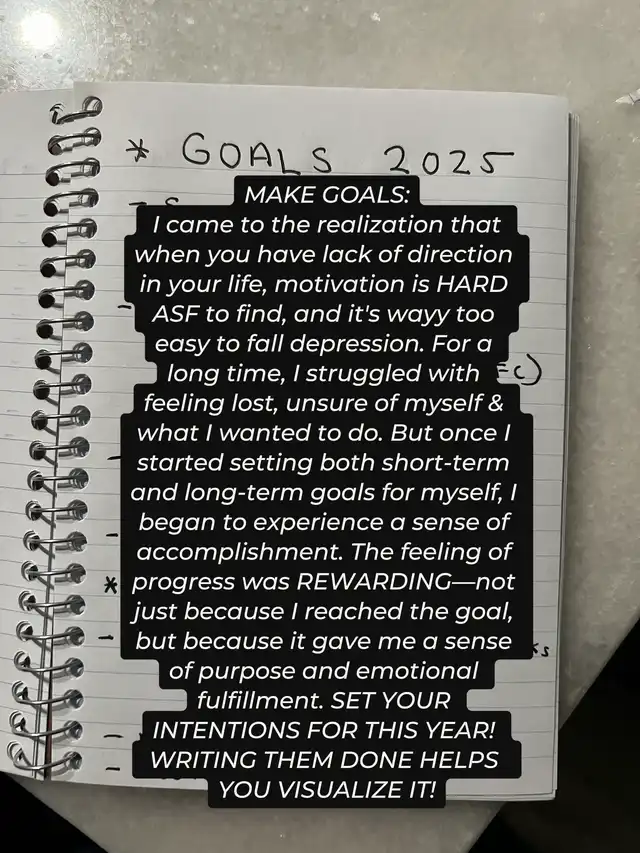 * GOALS 2025
MAKE GOALS:
I came to the realization that
when you have lack of direction
in your life, motivation is HARD
ASF to find, and it's wayy too
easy to fall depression. For a
long time, I struggled with
feeling lost, unsure of myself &
what I wanted to do. But once I
started setting both short-term
and long-term goals for myself, I
began to experience a sense of
accomplishment. The feeling of
progress was REWARDING—not
just because I reached the goal,
but because it gave me a sense
of purpose and emotional
fulfillment. SET YOUR
INTENTIONS FOR THIS YEAR!
WRITING THEM DONE HELPS
YOU VISUALIZE IT!